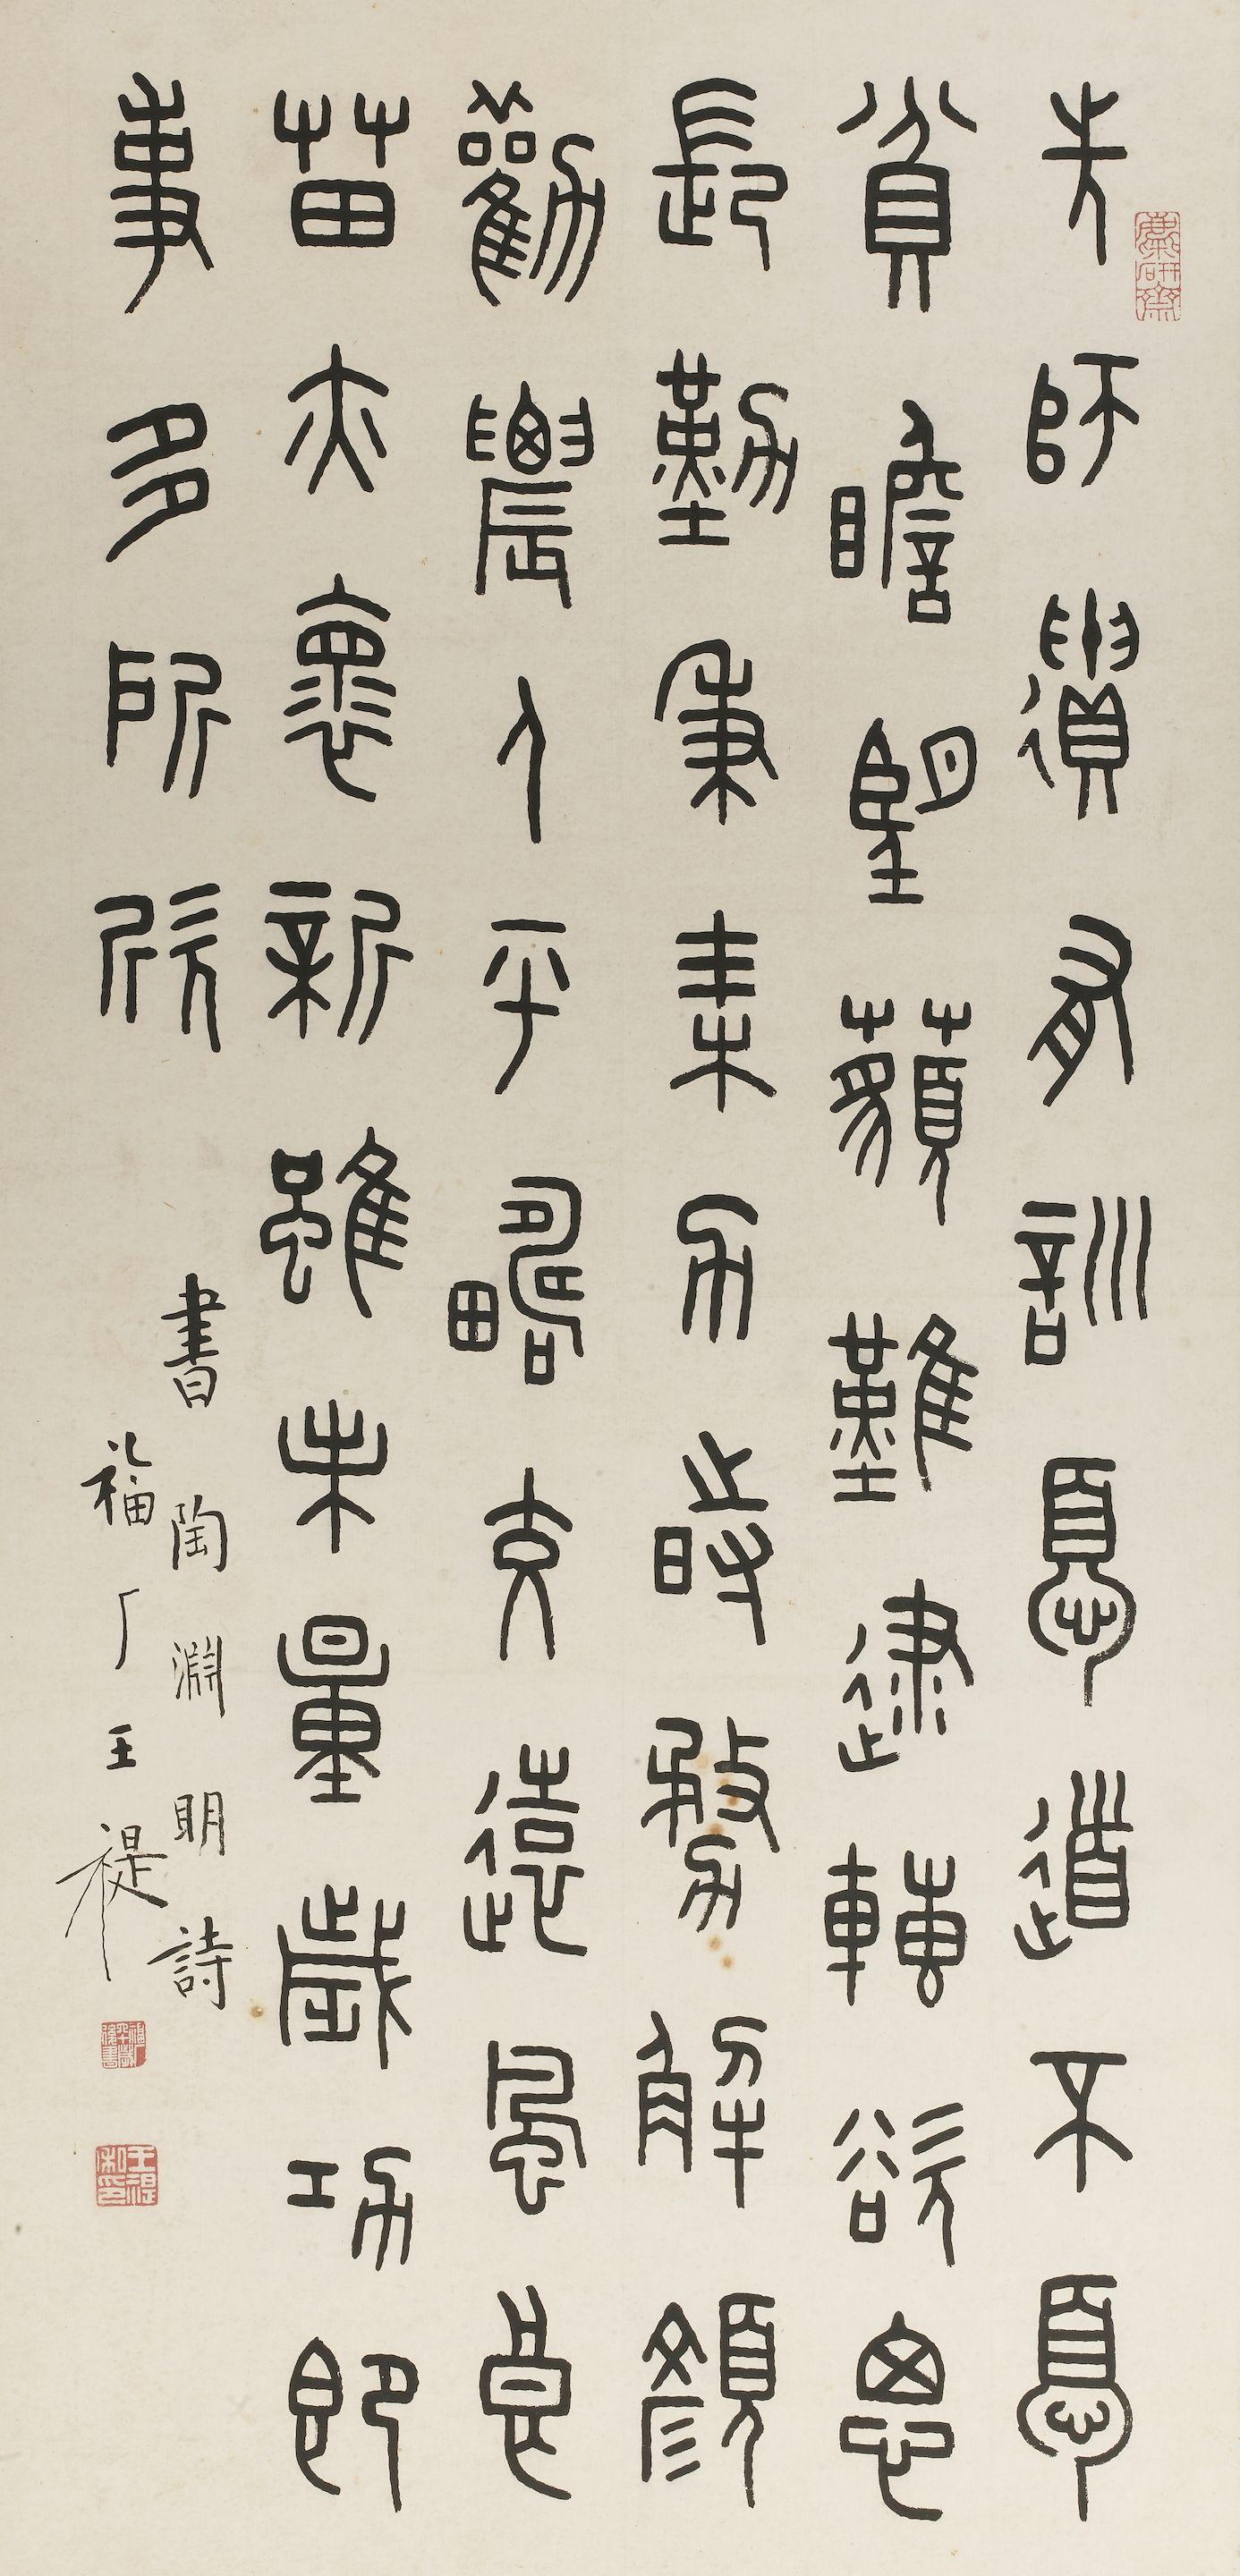 先師遺有訓憂道不憂
貧瞻望藐難逮轉欲思
長勤秉耒力時務解顏
勸農人平疇交遠風良
苗亦懷新雖未量歲功即
事多所欣
書陶淵明詩
福厂王禔
麋研齋
王禔私印